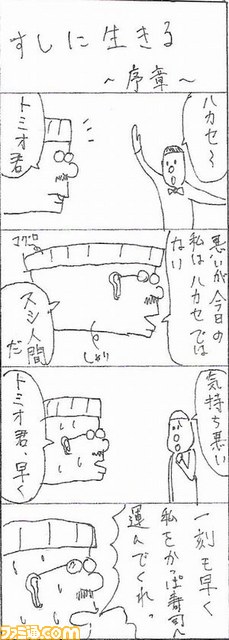 すしに生きる
~序章~
ハカセ~
トミオ君
悪いが、今日の
私はハカセでは
ない
マグロ
しゃり
スシ人間
だ
気持ち悪い
トミオ君、早く
一刻も早く
私をかっぱ寿司へ
運んでくれっ
ファミ通.com